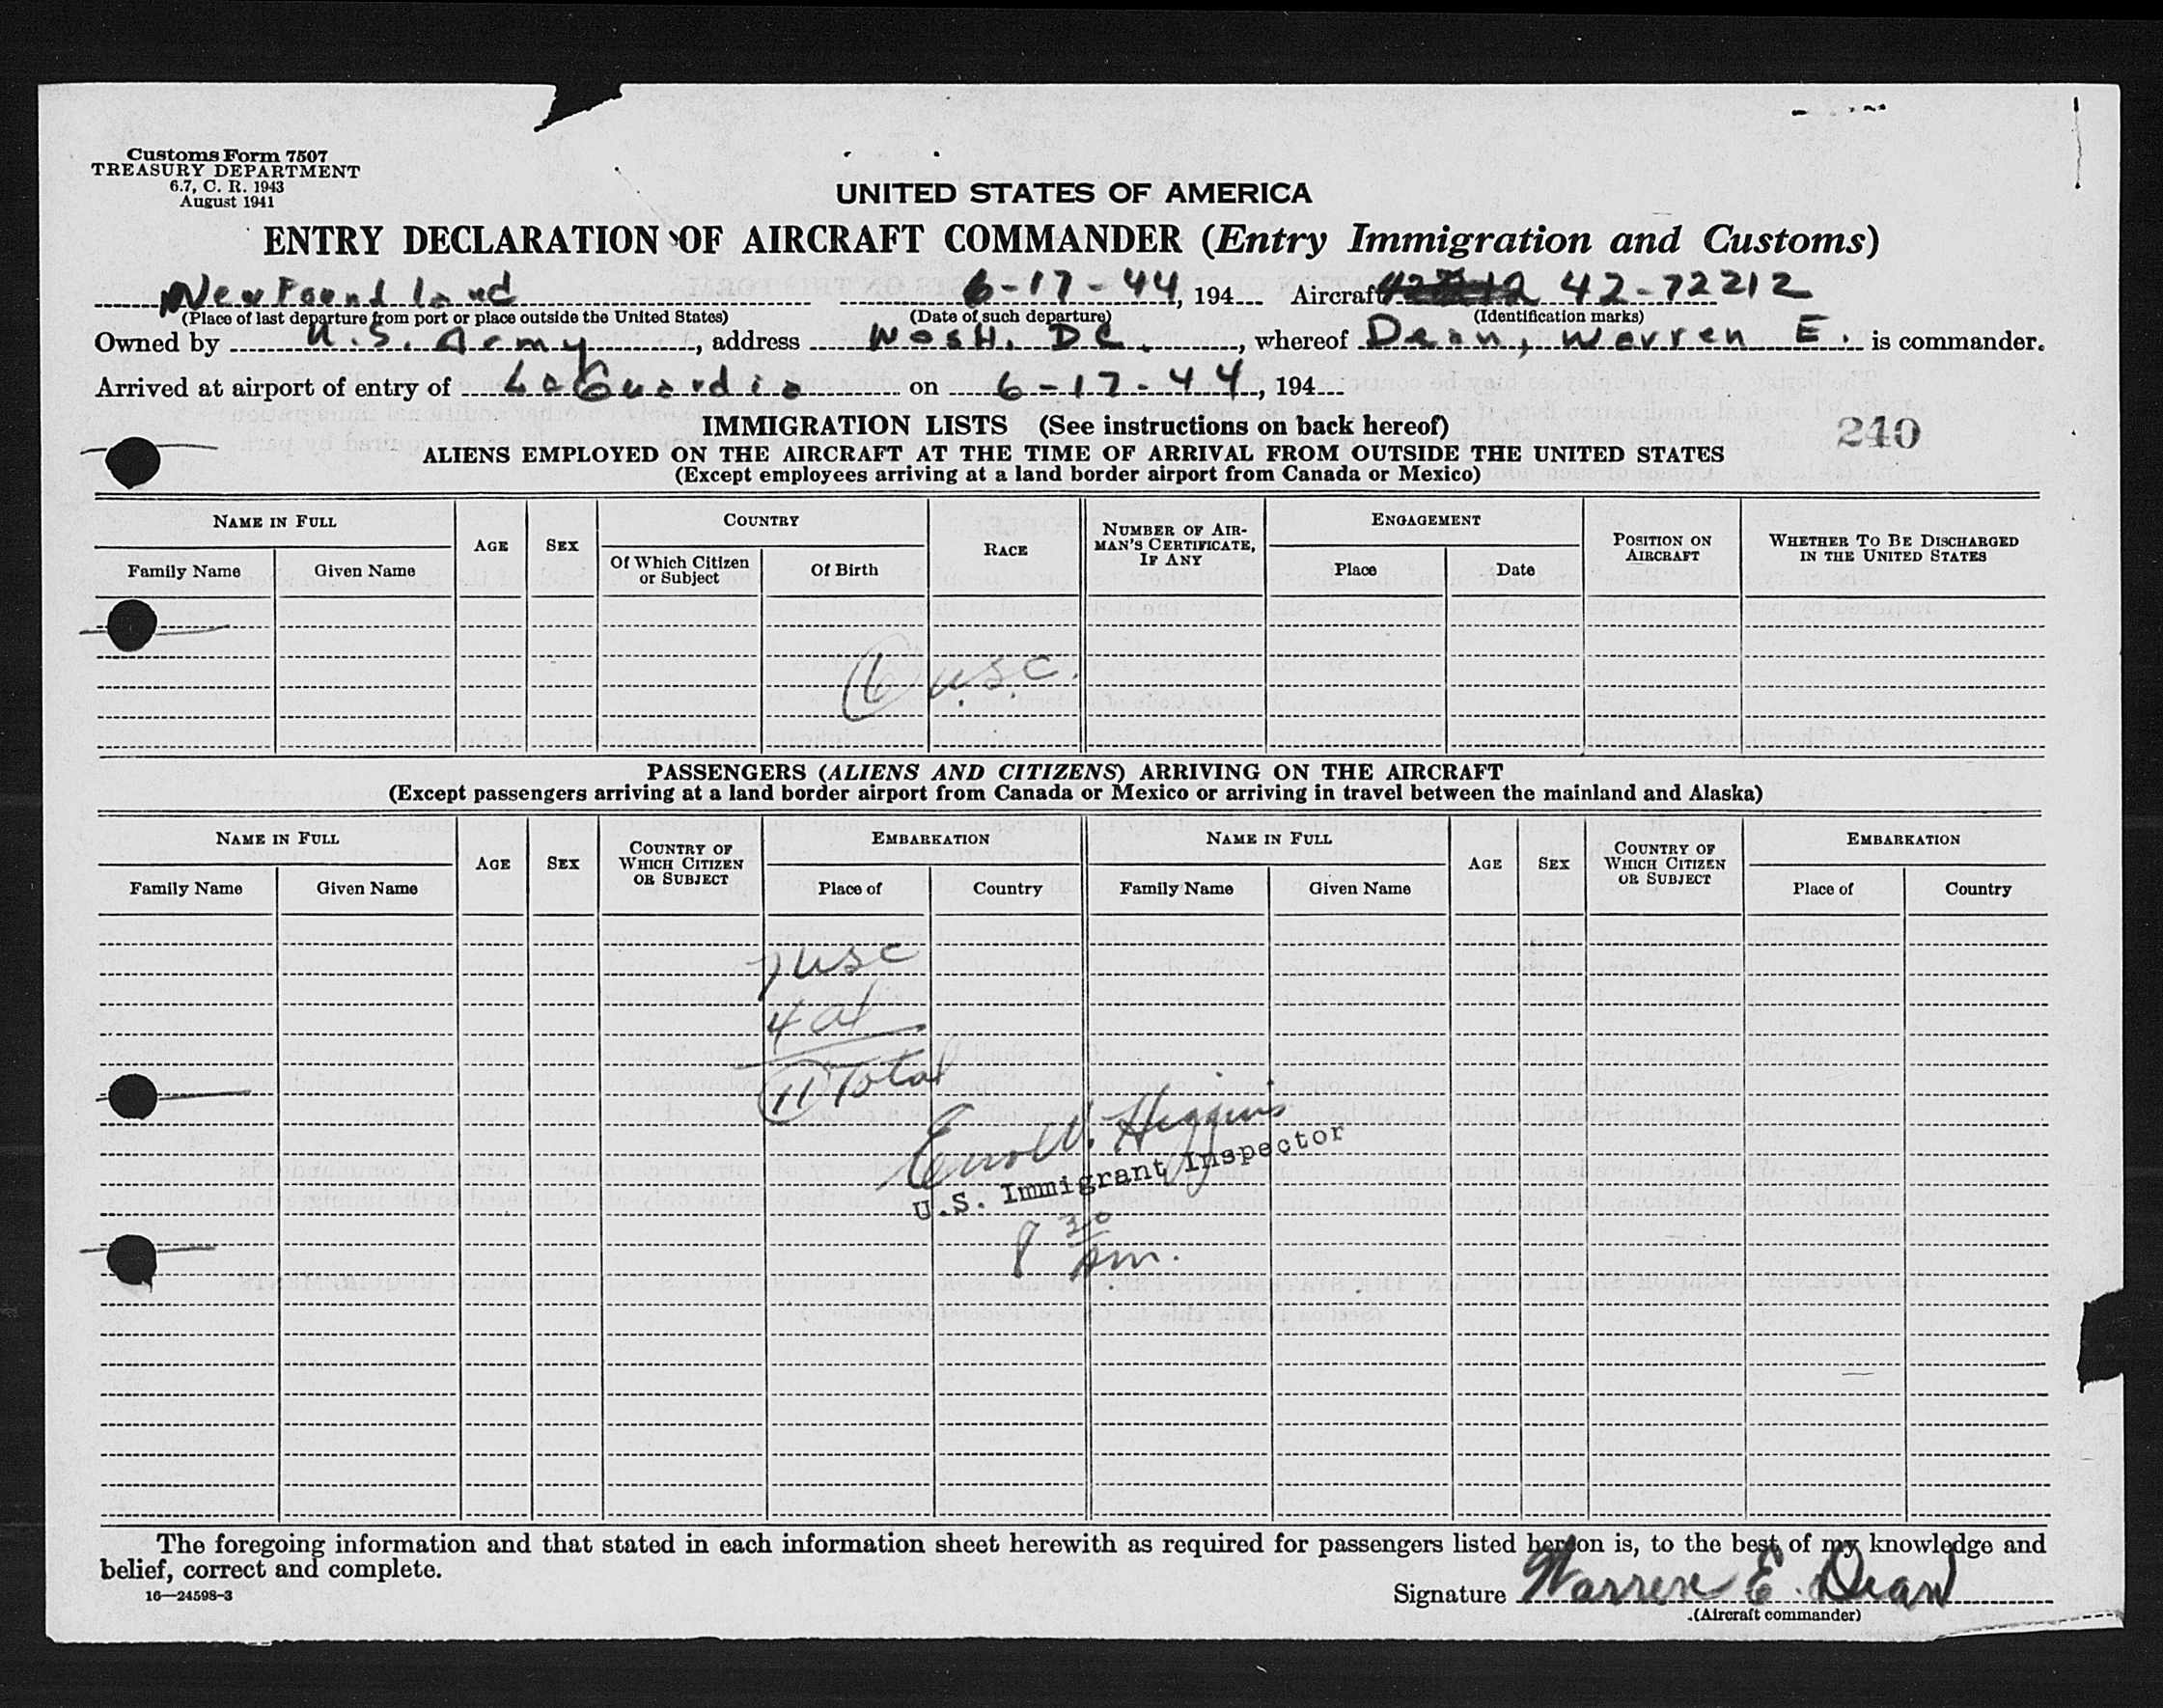 Customs Form 7507
TREASURY DEPARTMENT
6.7, C. R. 1943
August 1941
UNITED STATES OF AMERICA
ENTRY DECLARATION OF AIRCRAFT COMMANDER (Entry Immigration and Customs)
Newfoundland 6-17-44, 194 Aircraft 42-72212
(Place of last departure from port or place outside the United States) (Date of such departure) (Identification marks)
Owned by U.S. Army, address Wash. DC., whereof Dean, Warren E. is commander.
Arrived at airport of entry of LaGuardia on 6-17-44, 194
IMMIGRATION LISTS (See instructions on back hereof)
240
ALIENS EMPLOYED ON THE AIRCRAFT AT THE TIME OF ARRIVAL FROM OUTSIDE THE UNITED STATES
(Except employees arriving at a land border airport from Canada or Mexico)
NAME IN FULL AGE SEX COUNTRY RACE NUMBER OF AIRMAN'S CERTIFICATE, IF ANY ENGAGEMENT POSITION ON AIRCRAFT WHETHER TO BE DISCHARGED IN THE UNITED STATES
Family Name Given Name Of Which Citizen or Subject Of Birth Place Date
6 U.S.C.
PASSENGERS (ALIENS AND CITIZENS) ARRIVING ON THE AIRCRAFT
(Except passengers arriving at a land border airport from Canada or Mexico or arriving in travel between the mainland and Alaska)
NAME IN FULL AGE SEX COUNTRY OF WHICH CITIZEN OR SUBJECT EMBARKATION NAME IN FULL AGE SEX COUNTRY OF WHICH CITIZEN OR SUBJECT EMBARKATION
Family Name Given Name Place of Country Family Name Given Name Place of Country
7 USC
4 al
11 Total
Errol W. Higgins
U.S. Immigrant Inspector
8 30
The foregoing information and that stated in each information sheet herewith as required for passengers listed hereon is, to the best of my knowledge and
belief, correct and complete.
16—24598-3
Signature Warren E. Dean
(Aircraft commander)